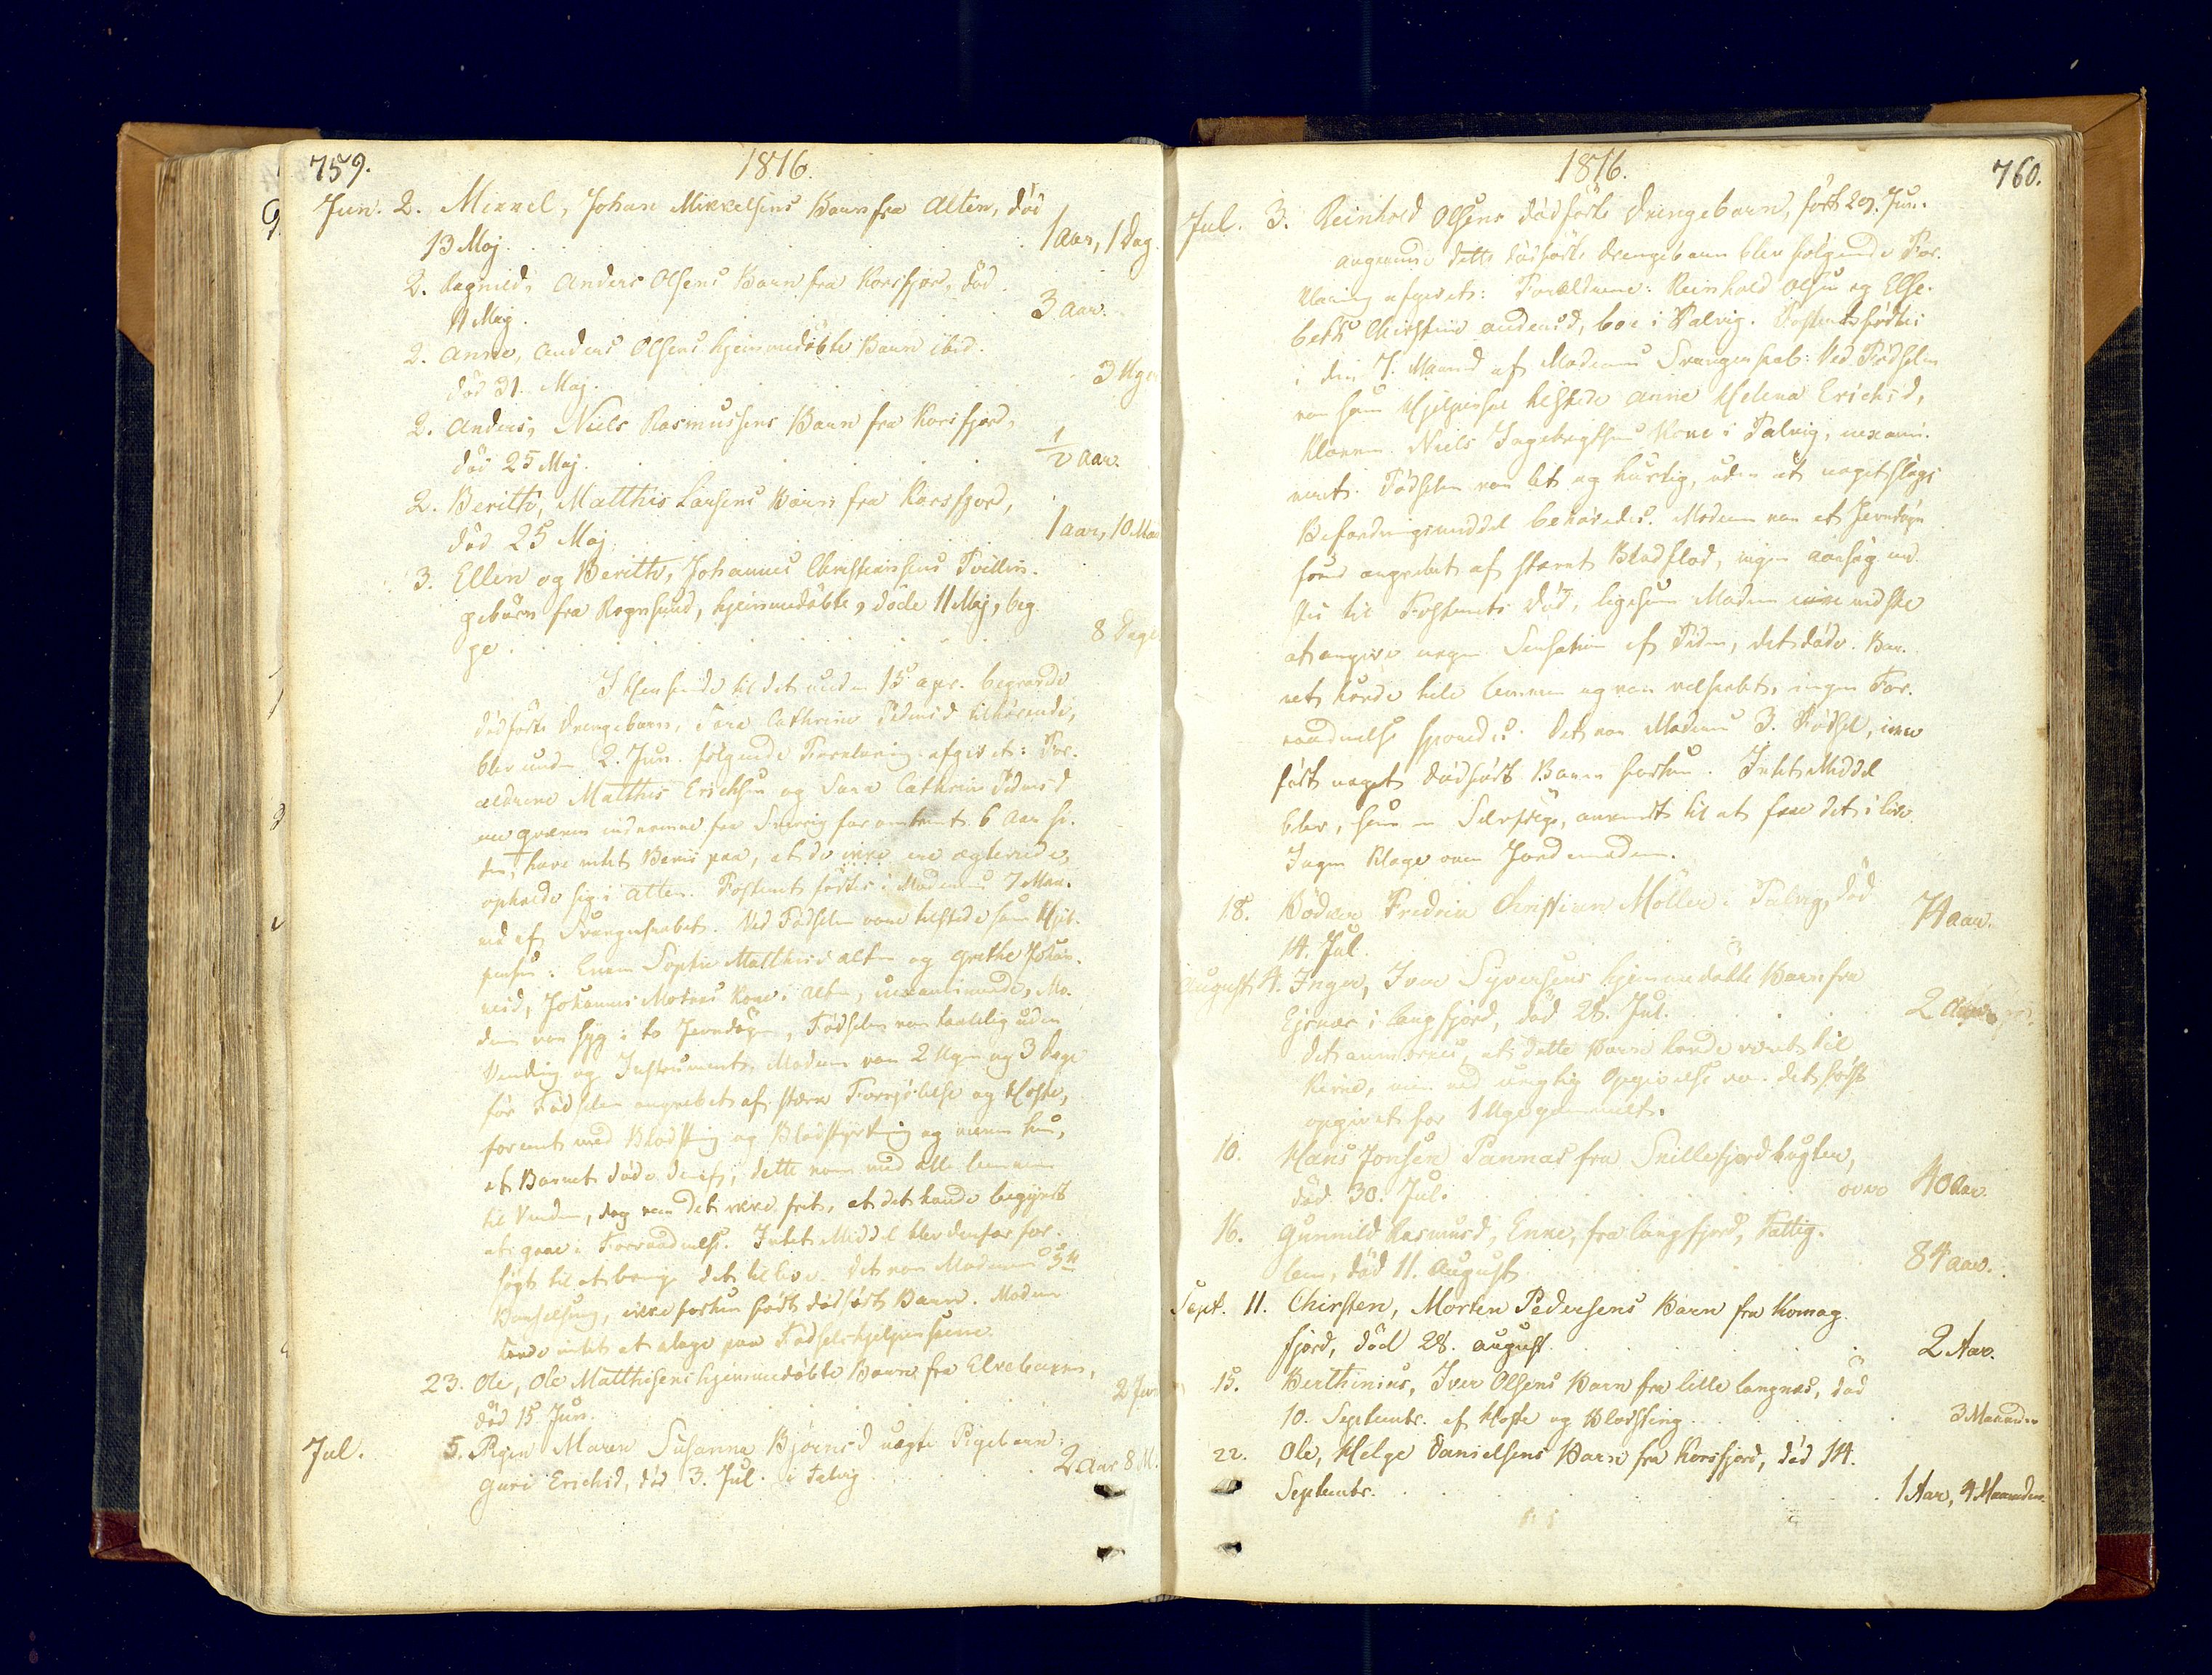 759.
1816.
Jun. 2. Mikkel, Johan Mikkelsens Barn fra Alten, död
13 Maj. 1 Aar, 1 Dag.
2. Ragnild, Anders Olsens Barn fra Korsfjord, död
Maj. 3 Aar.
2. Anne, Anders Olsens hjemmedöbte Barn ibid.
död 31. Maj. 3 Uger
2. Anders, Niels Rasmussens Barn fra Korsfjord,
död 25 Maj. 1/2 Aar.
2. Beritte, Matthis Larsens Barn fra Korsfjord,
död 25 Maj 1 Aar, 10 Maa
3. Ellen og Beritte, Johannes Christiansens Tvillin-
gebörn fra Rognsund, hjemmedöbte, döde 11 Maj, beg-
ge. 8 Dage
I Henseende til det under 15 Apr. begravede
dödfödte Drengebarn, Sara Cathrine tilhörende,
blev under 2. Jun. fölgende Forklaring afgivet: For-
ældrene Matthis Erichsen og Sara Cathrine
ere qvæner indkomne fra Sverrig for omtrent 6 Aar si-
den, have intet Beviis paa, at de ikke ere ægteviede,
opholde sig i Alten. Fosteret födtes i Moderens 7 Maa-
ned af Svangerskabet. Ved Födselen vare tilstede som Hjel-
persker: Enken Sophie Matthisd Alten og Grethe Johan-
nesd, Johannes Kone i Alten, uexaminerede, Mo-
deren var syg i to Jevndögn, Födselen var taalelig uden
Vending og Instrumenter. Moderen var 2 Uger og 3 Dage
för Födselen angrebet af stærk Forkjölelse og Hoste,
forenet med Blodsting og Blodstyrtning og meener hun,
at Barnet döde deraf; dette var med alle Lemmer
til Verden, dog var det ikke frit, at det havde begyndt
at gaae i Forraadnelse. Intet Middel blev derfor for-
sögt til at bringe det til Live. Det var Moderens 5te
Barselseng, ikke forhen födt dödfödt Barn. Moderen
havde intet at klage paa Födselshjelperskerne.
23. Ole, Ole Matthisens hjemmedöbte Barn fra Elvebakken,
död 15 Jun. 2
Jul. 5. Pigen Maren Susanna Björnsd uægte Pigebarn:
Guri Erichsd, död 3. Jul. i Talvig 2 Aar 8 M.
760.
1816.
Jul. 3. Reinhold Olsens dödfödte Drengebarn, födt 29. Jun.
Angaaende dette dödfödte Drengebarn blev fölgende For-
klaring afgivet: Forældrene: Reinhold Olsen og Else-
beth Christine Andersd, boe i Talvig. Fosteret födtes
i den 7. Maaned af Moderens Svangerskab: Ved Födselen
var som Hjelperske tilstede Anne Helena Erichsd,
Klokker Niels Ingebrigtsens Kone i Talvig, uexami-
neret. Födselen var let og hurtig, uden at noget slags
Befordringsmiddel behövedes. Moderen var et Jevndögn
forud angrebet af stærk Blodflod, ingen Aarsag vid-
stes til Fosterets Död, ligesom Moderen ikke vidste
at angive nogen Sensation af Tiden, det döde. Bar-
net havde hele Lemmer og var velskabt, ingen For-
raadnelse sporedes. Det var Moderens 3. Födsel, ikke
födt noget dödfödt Barn forhen. Intet Middel
blev, som overflödigt, anvendt til at faae det i Live.
Ingen Klage over Jordemoderen.
18. Bödker Fredrik Christian Möller i Talvig, död
14. Jul. 71 Aar.
August 4. Inger, Iver Syversens hjemmedöbte Barn fra
Ejsnæs i Langfjord, död 28. Jul. 2
Det anmærkes, at dette Barn havde været til
Kirke, men ved urigtig Opgivelse var det förste
opgivet for 1 Uge gammelt.
10. Hans Jonsen Pannas fra Skillefjordbugten,
död 30. Jul. over 40 Aar.
16. Gunnild Rasmusd, Enke, fra Langfjord, Fattig-
lem, död 11. August 84 Aar.
Sept. 11. Chirsten, Morten Pedersens Barn fra Komag-
fjord, död 28. August 2 Aar.
15. Berthinius, Iver Olsens Barn fra lille Langnæs, död
10. Septembr. af Hoste og Blodsting 3 Maaneder
22. Ole, Helge Danielsens Barn fra Korsfjord, död 14.
Septembr. 1 Aar, 4 Maaneder.